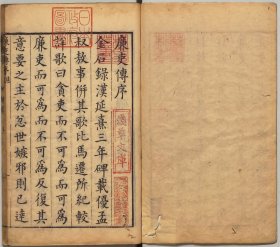 廉吏傳序
金石錄漢延熹三年碑載優孟
叔敖事併其歌比馬遷所紀較
詳歌曰貪吏而可為而不可為
廉吏而可為而不可為反復其
意要之主於忿世嫉邪則已達